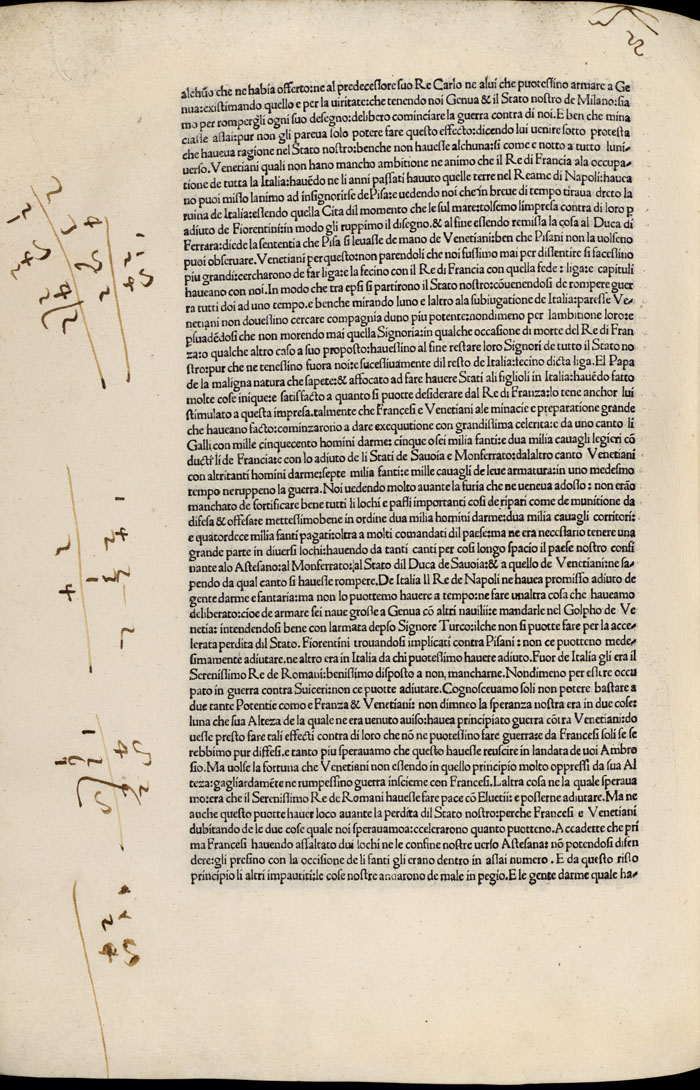 22
alchũo che ne habia offerto:ne al predecessore suo Re Carlo ne alui che puotessino armare a Ge
nua:existimando quello e per la uiritate:che tenendo noi Genua & il Stato nostro de Milano:sia
mo per rompergli ogni suo desegno:delibero cominciare la guerra contra di noi.E ben che mina
ciasse assai:pur non gli pareua solo potere fare questo effecto:dicendo lui uenire sotto protesta
che haueua ragione nel Stato nostro:benche non hauesse alchuna:si come e notto a tutto luni⸗
uerso.Venetiani quali non hano mancho ambitione ne animo che il Re di Francia ala occupa⸗
tione de tutta la Italia:hauẽdo ne li anni passati hauuto quelle terre nel Reame di Napoli:hauea
no puoi misso lanimo ad insignorirse de Pisa:e uedendo noi che in breue di tempo tiraua drcto la
ruina de Italia:essendo quella Cita dil momento che le sul mare:tolsemo limpresa contra di loro p
adiuto de Fiorentini:in modo gli ruppimo il disegno.& al fine essendo remissa la cosa al Duca di
Ferrara:diede la sententia che Pisa si leuasse de mano de Venetiani:ben che Pisani non la uolseno
puoi obseruare.Venetiani per questo:non parendoli che noi fussimo mai per dissentire si facessino
piu grandi:cercharono de far liga:e la fecino con il Re di Francia con quella fede : liga:e capituli
haueano con noi.In modo che tra epsi si partirono il Stato nostro:cõuenendosi de rompere guer
ra tutti doi ad uno tempo.e benche mirando luno e laltro ala subiugatione de Italia:paresse Ve⸗
netiani non douessino cercare compagnia duno piu potente:nondimeno per lambitione loro:e
psuadẽdosi che non morendo mai quella Signoria:in qualche occasione di morte del Re di Fran
za:o qualche altro caso a suo proposto:hauessino al fine restare loro Signori de tutto il Stato no
stro:pur che ne tenessino fuora noi:e sucessiuamente dil resto de Italia:fecino dicta liga.El Papa
de la maligna natura che sapete:& affocato ad fare hauere Stati ali figlioli in Italia:hauẽdo fatto
molte cose inique:e satisfacto a quanto si puotte desiderare dal Re di Franza:lo tene anchor lui
stimulato a questa impresa.talmente che Francesi e Venetiani ale minacie e preparatione grande
che haueano facto:cominzarono a dare exequutione con grandissima celerita:e da uno canto li
Galli con mille cinquecento homini darme: cinque o sei milia fanti:e dua milia cauagli legieri cõ
ducti li de Francia:e con lo adiuto de li Stati de Sauoia e Monferrato:dalaltro canto Venetiani
con altritanti homini darme:septe milia fanti:e mille cauagli de leue armatura:in uno medesmo
tempo ne ruppeno la guerra.Noi uedendo molto auante la furia che ne ueneua adosso : non erão
manchato de fortificare bene tutti li lochi e passi importanti cosi de ripari come de munitione da
difesa & offesa:e mettessimo bene in ordine dua milia homini darme:dua milia cauagli corritori:
e quatordece milia fanti pagati:oltra a molti comandati dil paese:ma ne era necessario tenere una
grande parte in diuersi lochi:hauendo da tanti canti per cosi longo spacio il paese nostro confi
nante alo Astesano:al Monferrato:al Stato dil Duca de Sauoia:& a quello de Venetiani:ne sa⸗
pendo da qual canto si hauesse rompere.De Italia Il Re de Napoli ne hauea promisso adiuto de
gente darme e fantaria:ma non lo puottemo hauere a tempo:ne fare unaltra cosa che haueamo
deliberato:cioe de armare sei naue grosse a Genua cõ altri nauilii:e mandarle nel Golpho de Ve
netia: intendendosi bene con larmata depso Signore Turco:ilche non si puotte fare per la acce⸗
lerata perdita dil Stato. Fiorentini trouandosi implicati contra Pisani : non ce puotteno mede⸗
simamente adiutare.ne altro era in Italia da chi puotessimo hauere adiuto.Fuor de Italia gli era il
Serenissimo Re de Romani:benissimo disposto a non, mancharne.Nondimeno per essere occu
pato in guerra contra Suiceri:non ce puotte adiutare.Cognosceuamo soli non potere bastare a
due tante Potentie como e Franza & Venetiani: non dimneo la speranza nostra era in due cose:
luna che sua Alteza de la quale ne era uenuto auiso:hauea principiato guerra cõtra Venetiani:do
uesse presto fare tali effecti contra di loro che nõ ne puotessino fare guerra:e da Francesi soli se se
rebbimo pur diffesi.e tanto piu sperauamo che questo hauesse reuscire in landata de uoi Ambro
sio.Ma uolse la fortuna che Venetiani non essendo in quello principio molto oppressi da sua Al
teza:gagliardamẽte ne rumpessino guerra insciemé con Francesi.Laltra cosa ne la quale speraua
mo:era che il Serenissimo Re de Romani hauesse fare pace cõ Eluetii: e posserne adiutare.Ma ne
anche questo puotte hauer loco auante la perdita dil Stato nostro:perche Francesi e Venetiani
dubitando de le due cose quale noi sperauamo:accelerarono quanto puotteno.Accadette che pri
ma Francesi hauendo assaltato dui lochi ne le confine nostre uerso Astesana: nõ potendosi difen
dere:gli presino con la occisione de li fanti gli erano dentro in assai numero . E da questo risso
principio li altri impautiti:le cose nostre andarono de male in pegio.E le gente darme quale ha⸗